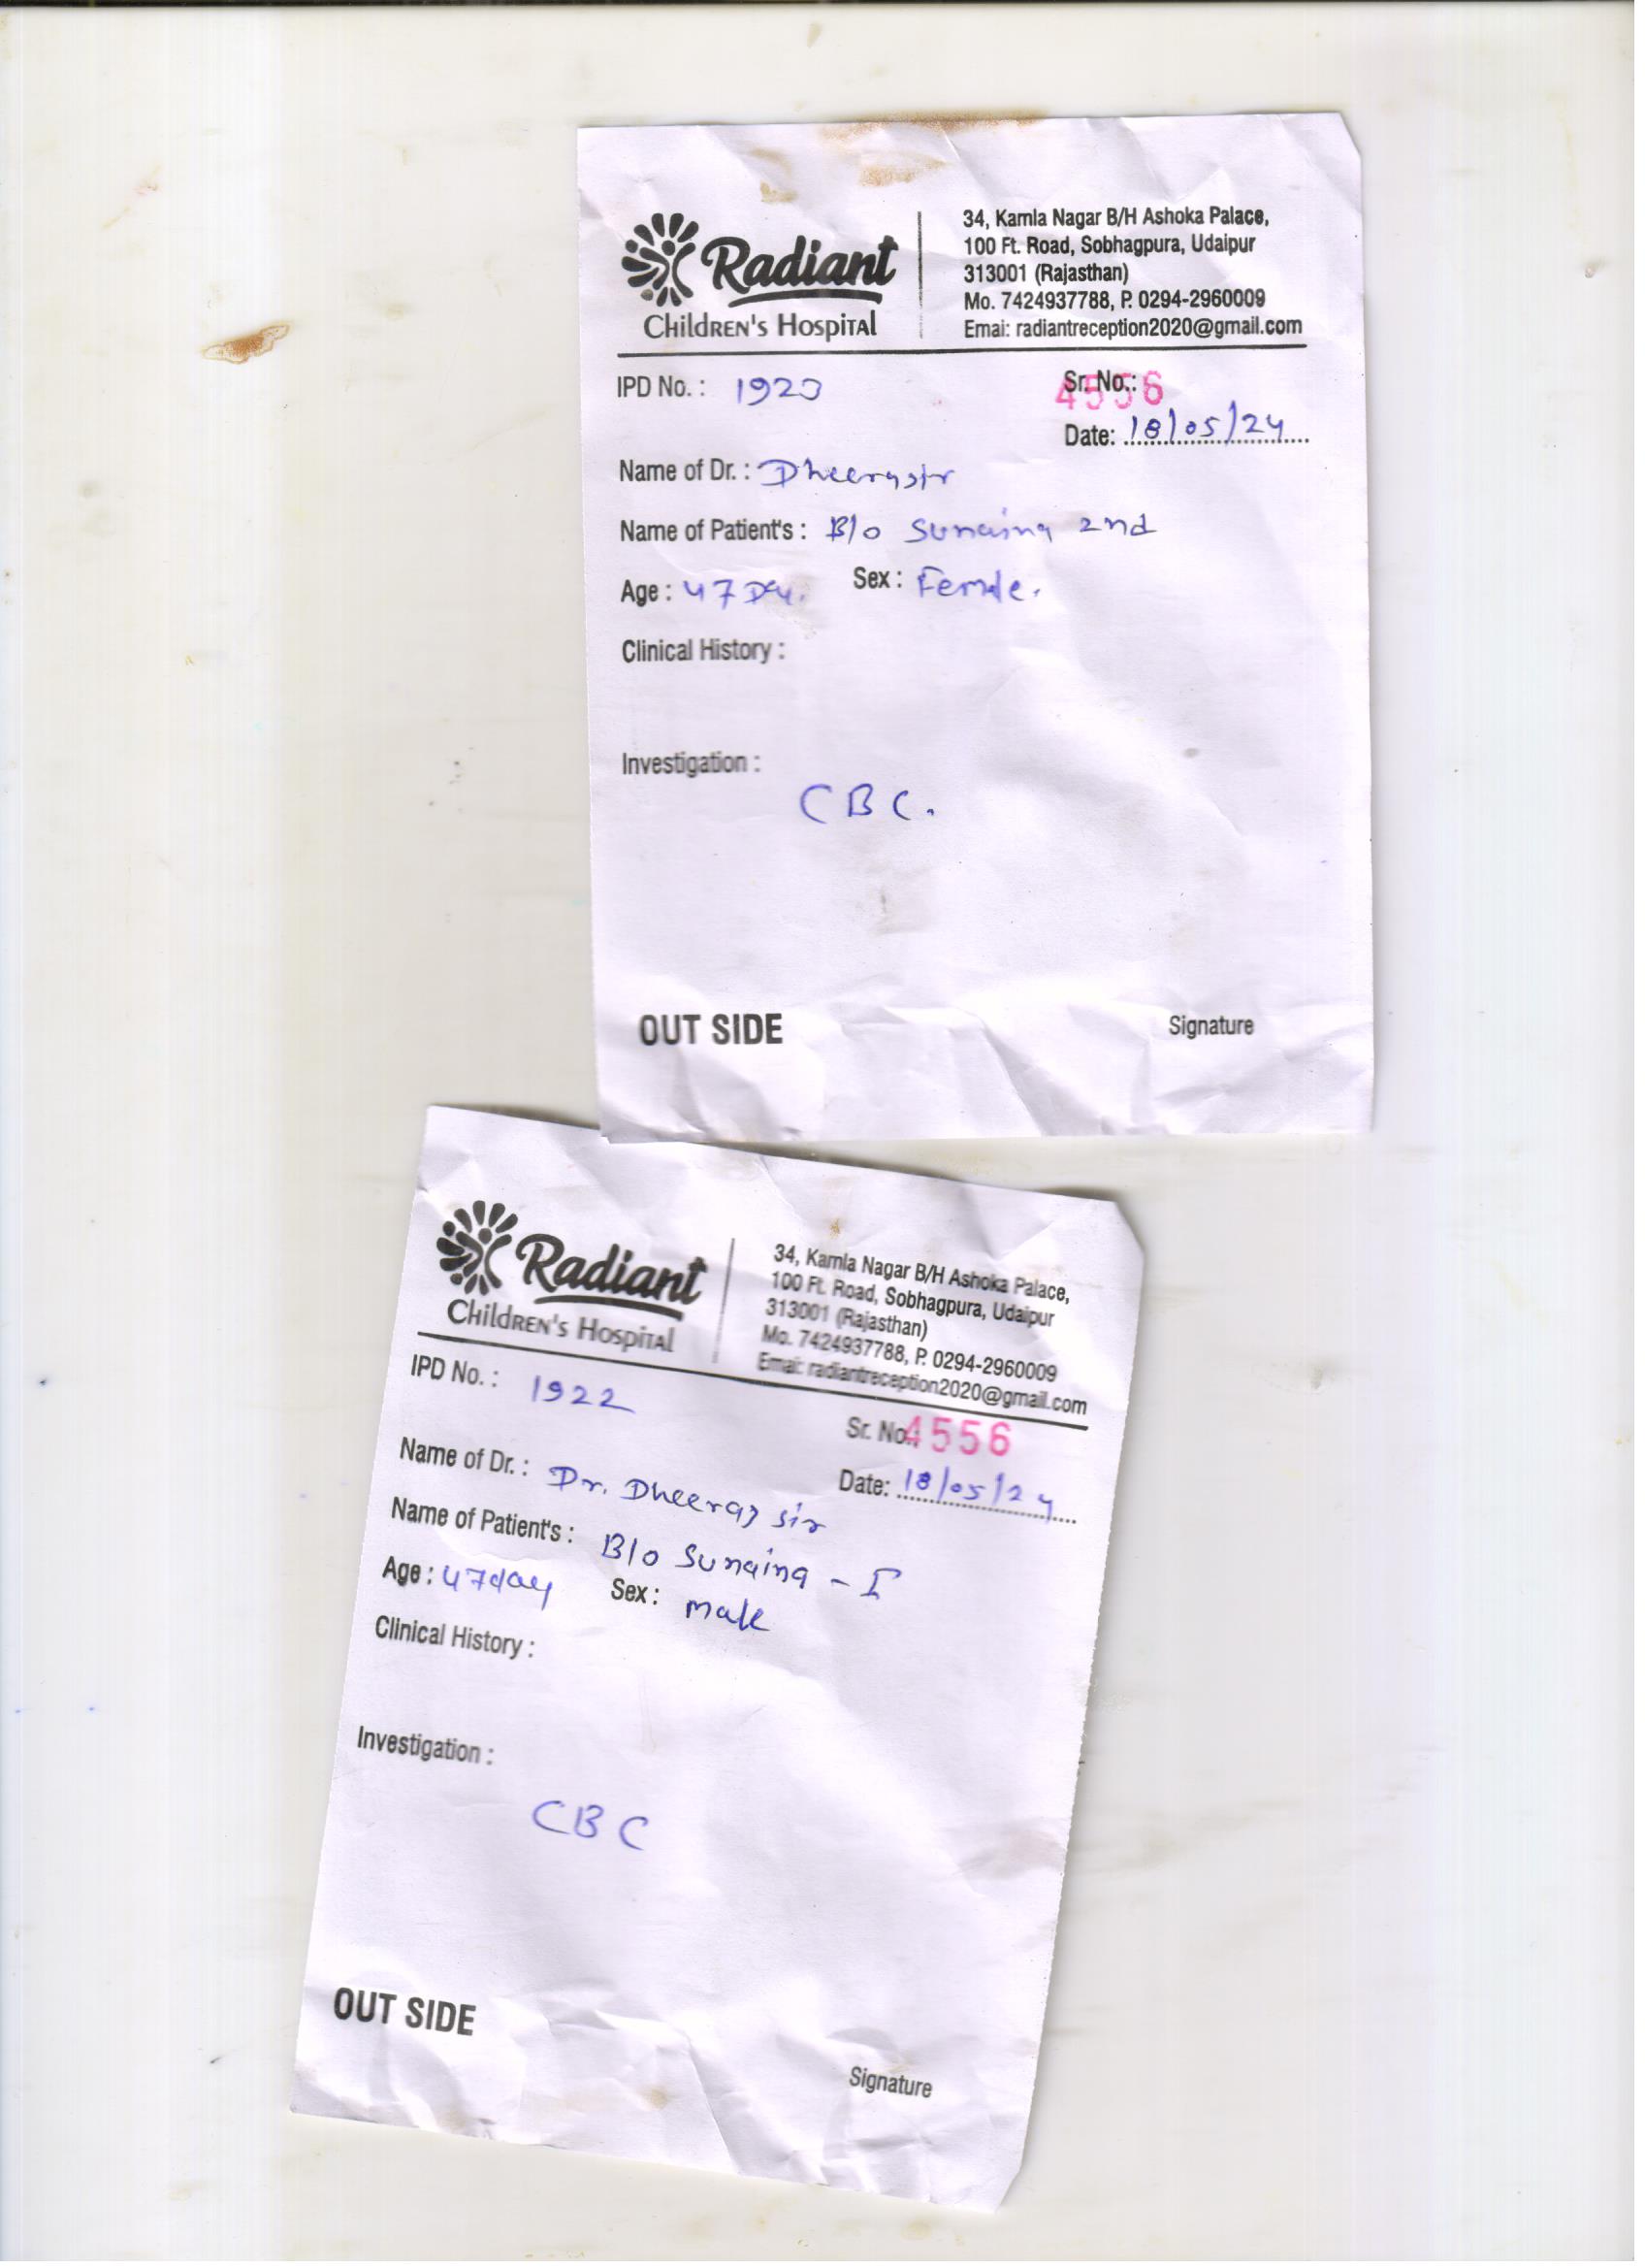 Radiant
Children's Hospital
34, Kamla Nagar B/H Ashoka Palace,
100 Ft. Road, Sobhagpura, Udaipur
313001 (Rajasthan)
Mo. 7424937788, P. 0294-2960009
Emai: radiantreception2020@gmail.com
IPD No. : 1923
Sr. No.: 4556
Date: 18/05/24
Name of Dr. :
Name of Patient's : B/o Sunaina 2nd
Age : 47 Day. Sex : Female.
Clinical History :
Investigation :
CBC.
OUT SIDE
Signature
Radiant
Children's Hospital
34, Kamla Nagar B/H Ashoka Palace,
100 Ft. Road, Sobhagpura, Udaipur
313001 (Rajasthan)
Mo. 7424937788, P. 0294-2960009
Emai: radiantreception2020@gmail.com
IPD No. : 1922
Sr. No.: 4556
Date: 18/05/24
Name of Dr. : Dr. Dheeraj sir
Name of Patient's : B/o Sunaina - I
Age : 47day Sex : male
Clinical History :
Investigation :
CBC
OUT SIDE
Signature